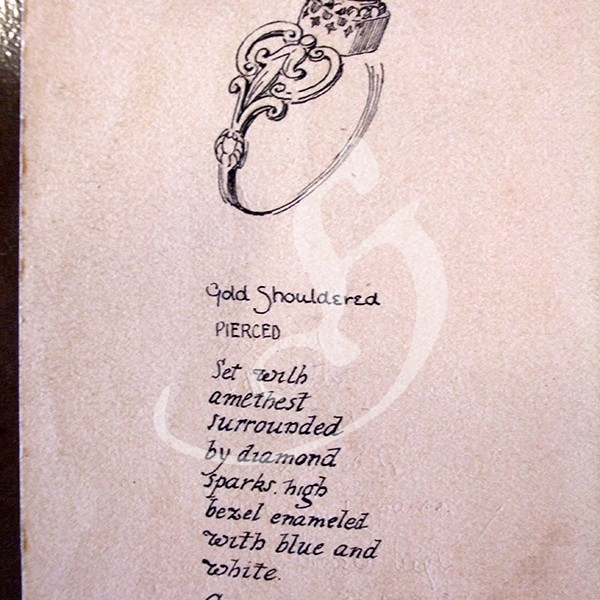 Gold Shouldered
PIERCED
Set with
amethest
surrounded
by diamond
sparks. high
bezel enameled
with blue and
white.